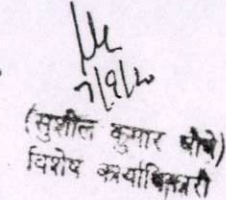 7/9/20
(सुशील कुमार चौबे)
विशेष कार्याधिकारी